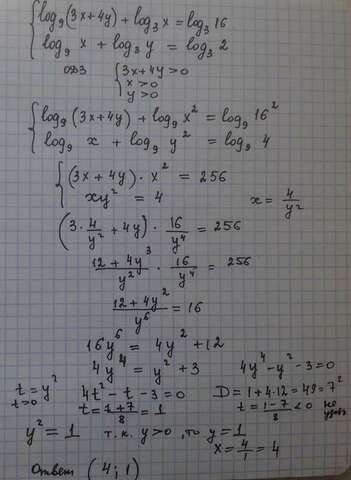 { log₉(3x+4y) + log₃ x = log₃ 16
log₉ x + log₃ y = log₃ 2
ОДЗ { 3x+4y>0
x>0
y>0
{ log₉(3x+4y) + log₉ x² = log₉ 16²
log₉ x + log₉ y² = log₉ 4
{ (3x+4y)·x² = 256
xy² = 4 x = 4/y²
(3·4/y² + 4y)·16/y⁴ = 256
12+4y³/y² · 16/y⁴ = 256
12+4y²/y⁶ = 16
16y⁶ = 4y² + 12
4y⁴ = y² + 3 4y⁴ - y² - 3 = 0
t = y² 4t² - t - 3 = 0 D = 1+4·12 = 49 = 7²
t>0 t = 1+7/8 = 1 t = 1-7/8 < 0 не удов
y² = 1 т.к. y>0, то y = 1
x = 4/1 = 4
Ответ (4; 1)